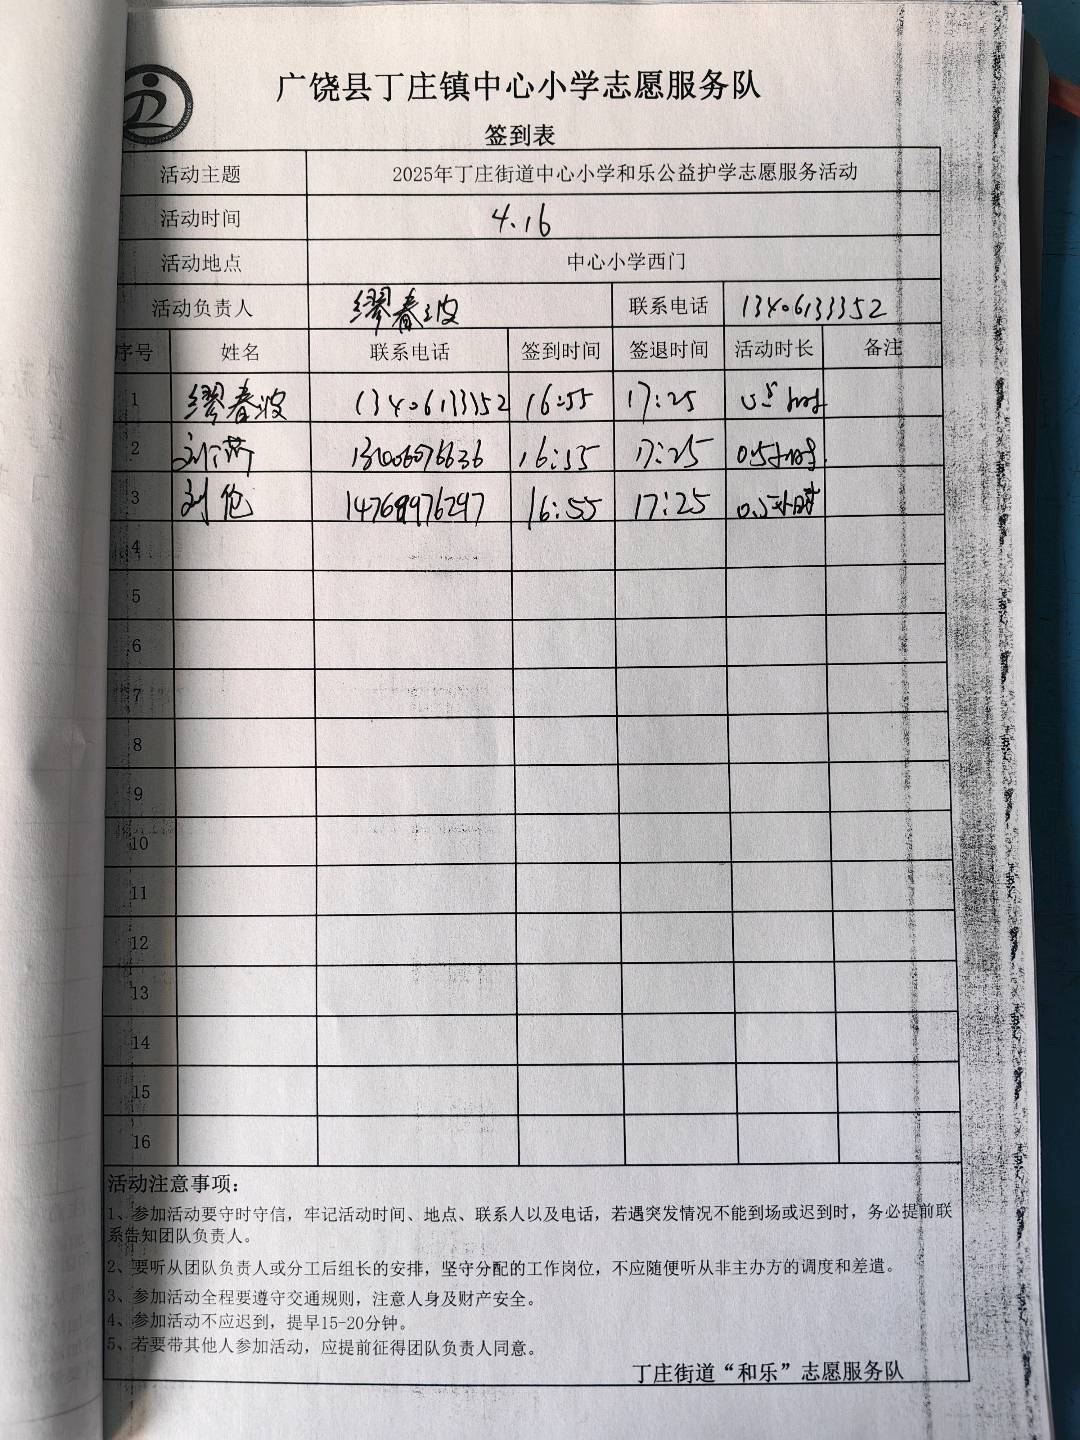 广饶县丁庄镇中心小学志愿服务队
签到表
活动主题 2025年丁庄街道中心小学和乐公益护学志愿服务活动
活动时间 4.16
活动地点 中心小学西门
活动负责人 缪春波 联系电话 13406133352
序号 姓名 联系电话 签到时间 签退时间 活动时长 备注
1 缪春波 13406133352 16:55 17:25 0.5小时
2 刘 16:55 17:25 0.5小时
3 刘伦 16:55 17:25 0.5小时
4
5
6
7
8
9
10
11
12
13
14
15
16
活动注意事项：
1、参加活动要守时守信，牢记活动时间、地点、联系人以及电话，若遇突发情况不能到场或迟到时，务必提前联
系告知团队负责人。
2、要听从团队负责人或分工后组长的安排，坚守分配的工作岗位，不应随便听从非主办方的调度和差遣。
3、参加活动全程要遵守交通规则，注意人身及财产安全。
4、参加活动不应迟到，提早15-20分钟。
5、若要带其他人参加活动，应提前征得团队负责人同意。
丁庄街道“和乐”志愿服务队